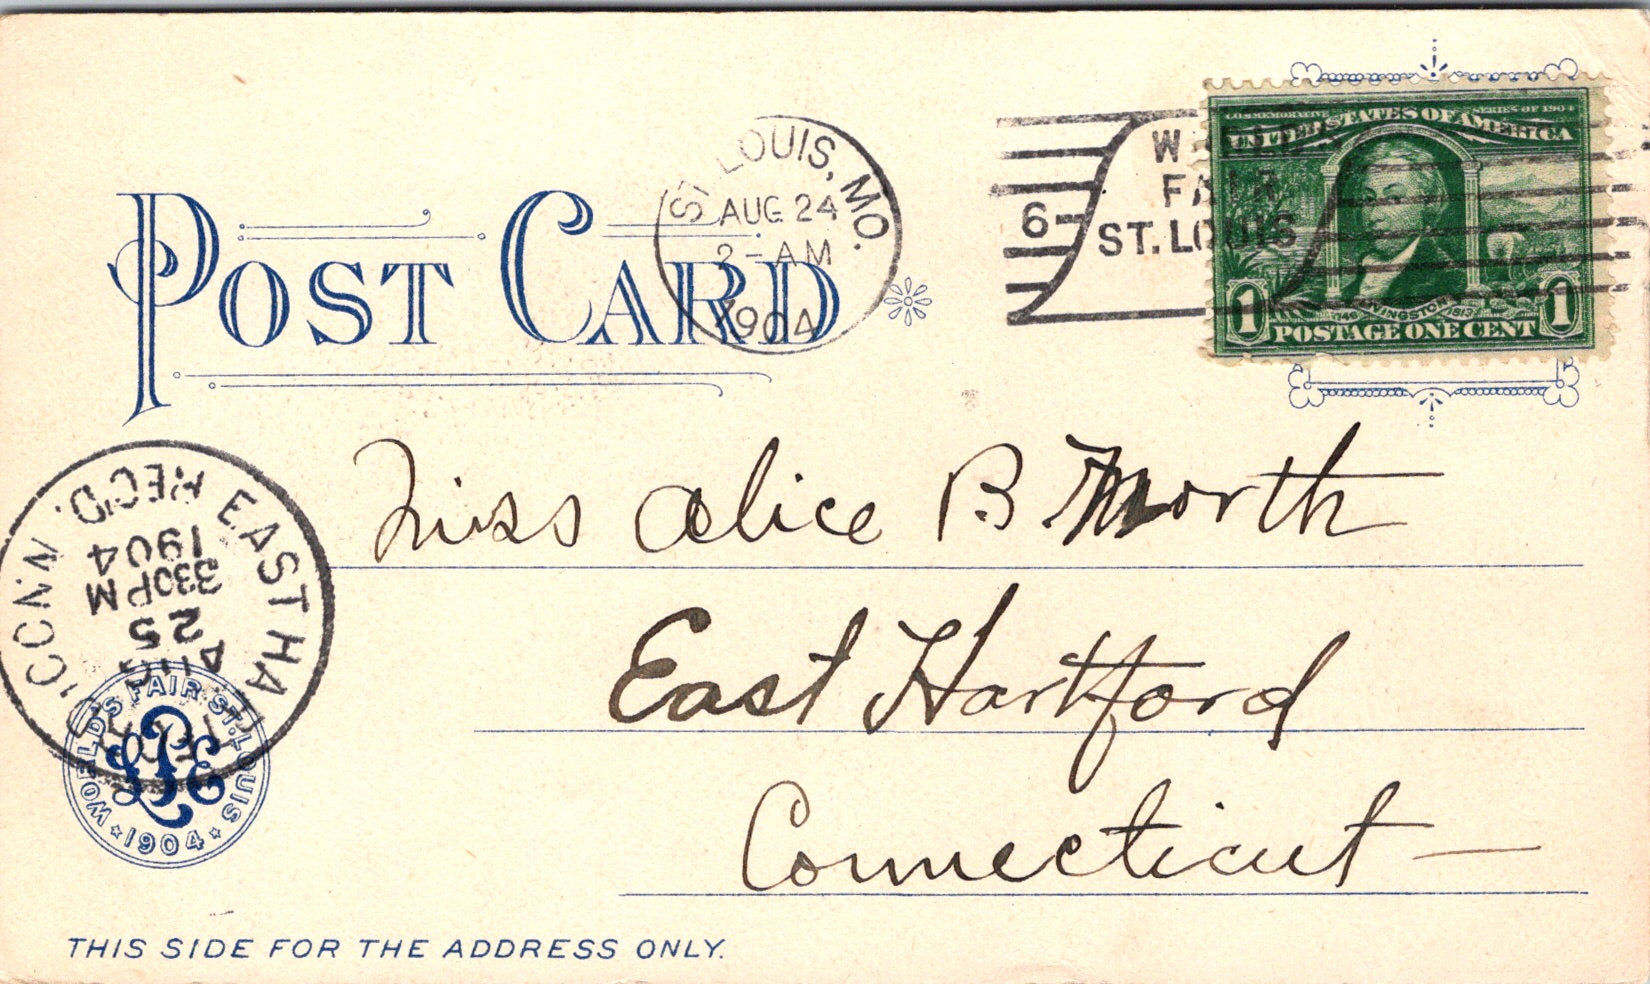 POST CARD
ST. LOUIS, MO.
AUG 24
2-AM
1904
6
WORLD'S
FAIR
ST. LOUIS
COMMEMORATIVE SERIES OF 1904
UNITED STATES OF AMERICA
LIVINGSTON
1 POSTAGE ONE CENT 1
EAST HARTFORD, CONN. REC'D.
AUG
25
330PM
1904
Miss Alice B.
East Hartford
Connecticut —
WORLD'S FAIR ST. LOUIS
LPE
★ 1904 ★
THIS SIDE FOR THE ADDRESS ONLY.